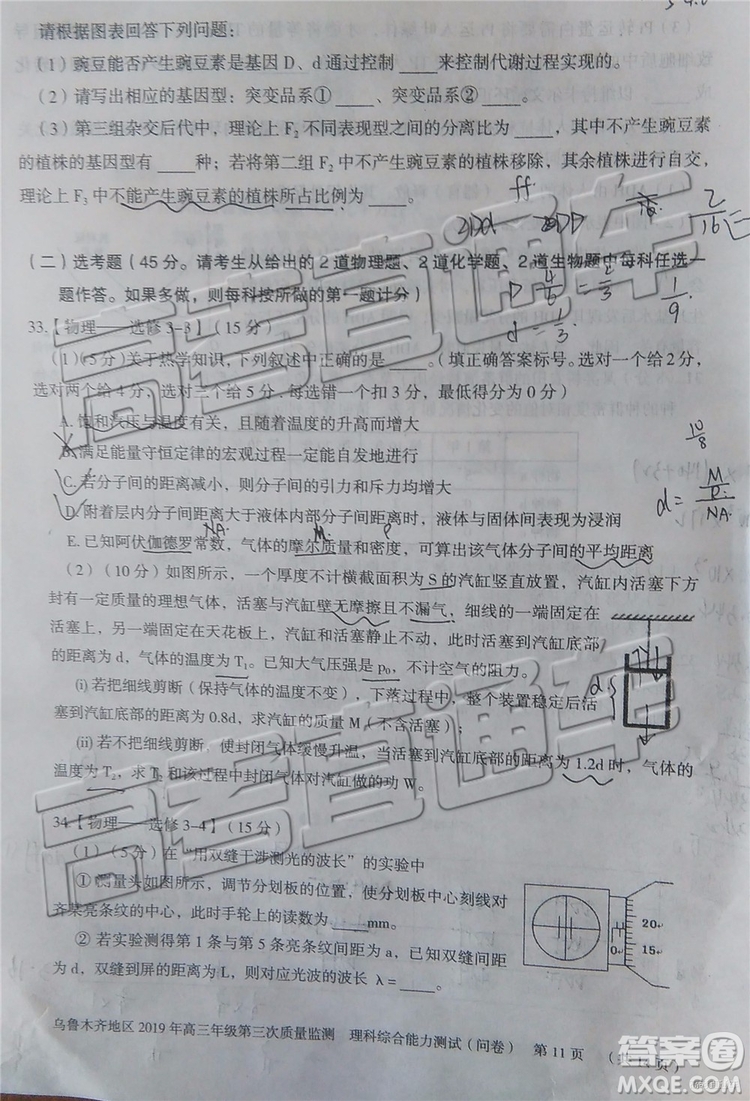 请根据图表回答下列问题：
(1) 豌豆能否产生豌豆素是基因 D、d 通过控制____来控制代谢过程实现的。
(2) 请写出相应的基因型：突变品系①____、突变品系②____。
(3) 第三组杂交后代中，理论上 F₂ 不同表现型之间的分离比为____，其中不产生豌豆素
的植株的基因型有____种；若将第二组 F₂ 能产生豌豆素的植株移除，其余植株进行自交，
理论上 F₃ 中不能产生豌豆素的植株所占比例为____。
ff
Dd
DD
2/16 =
D 4/6 = 2/3
d = 1/3
1/9
(二) 选考题 (45 分。请考生从给出的 2 道物理题、2 道化学题、2 道生物题中每科任选一
题作答。如果多做，则每科按所做的第一题计分)
33.【物理——选修 3-3】(15 分)
(1)(5 分) 关于热学知识，下列叙述中正确的是____。(填正确答案标号。选对一个给 2 分，
选对两个给 4 分，选对三个给 5 分，每选错一个扣 3 分，最低得分为 0 分)
A. 饱和汽压与温度有关，且随着温度的升高而增大
B. 满足能量守恒定律的宏观过程一定能自发地进行
C. 若分子间的距离减小，则分子间的引力和斥力均增大
D. 附着层内分子间距离大于液体内部分子间距离时，液体与固体间表现为浸润
NA. M. ρ
E. 已知阿伏伽德罗常数，气体的摩尔质量和密度，可算出该气体分子间的平均距离
10/8
d =
M
NA.
(2) (10 分) 如图所示，一个厚度不计横截面积为 S 的汽缸竖直放置，汽缸内活塞下方
封有一定质量的理想气体，活塞与汽缸壁无摩擦且不漏气，细线的一端固定在
活塞上，另一端固定在天花板上，汽缸和活塞静止不动，此时活塞到汽缸底部
的距离为 d，气体的温度为 T₁。已知大气压强是 p₀，不计空气的阻力。
(i) 若把细线剪断 (保持气体的温度不变)，下落过程中，整个装置稳定后活
塞到汽缸底部的距离为 0.8d，求汽缸的质量 M (不含活塞)；
(ii) 若不把细线剪断，使封闭气体缓慢升温，当活塞到汽缸底部的距离为 1.2d 时，气体的
温度为 T₂，求 T₂ 和该过程中封闭气体对汽缸做的功 W。
d
34.【物理——选修 3-4】(15 分)
(1) (5 分) 在“用双缝干涉测光的波长”的实验中
① 测量头如图所示，调节分划板的位置，使分划板中心刻线对
齐某亮条纹的中心，此时手轮上的读数为____mm。
② 若实验测得第 1 条与第 5 条亮条纹间距为 a，已知双缝间距
为 d，双缝到屏的距离为 L，则对应光波的波长 λ = ____。
0
20
15
乌鲁木齐地区 2019 年高三年级第三次质量监测 理科综合能力测试 (问卷) 第 11 页 (共 14 页)
高考直通车
高考直通车
答案圈
MXQE.COM